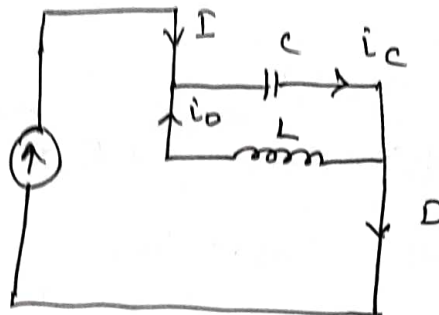 I
C
i_C
i_0
L
D